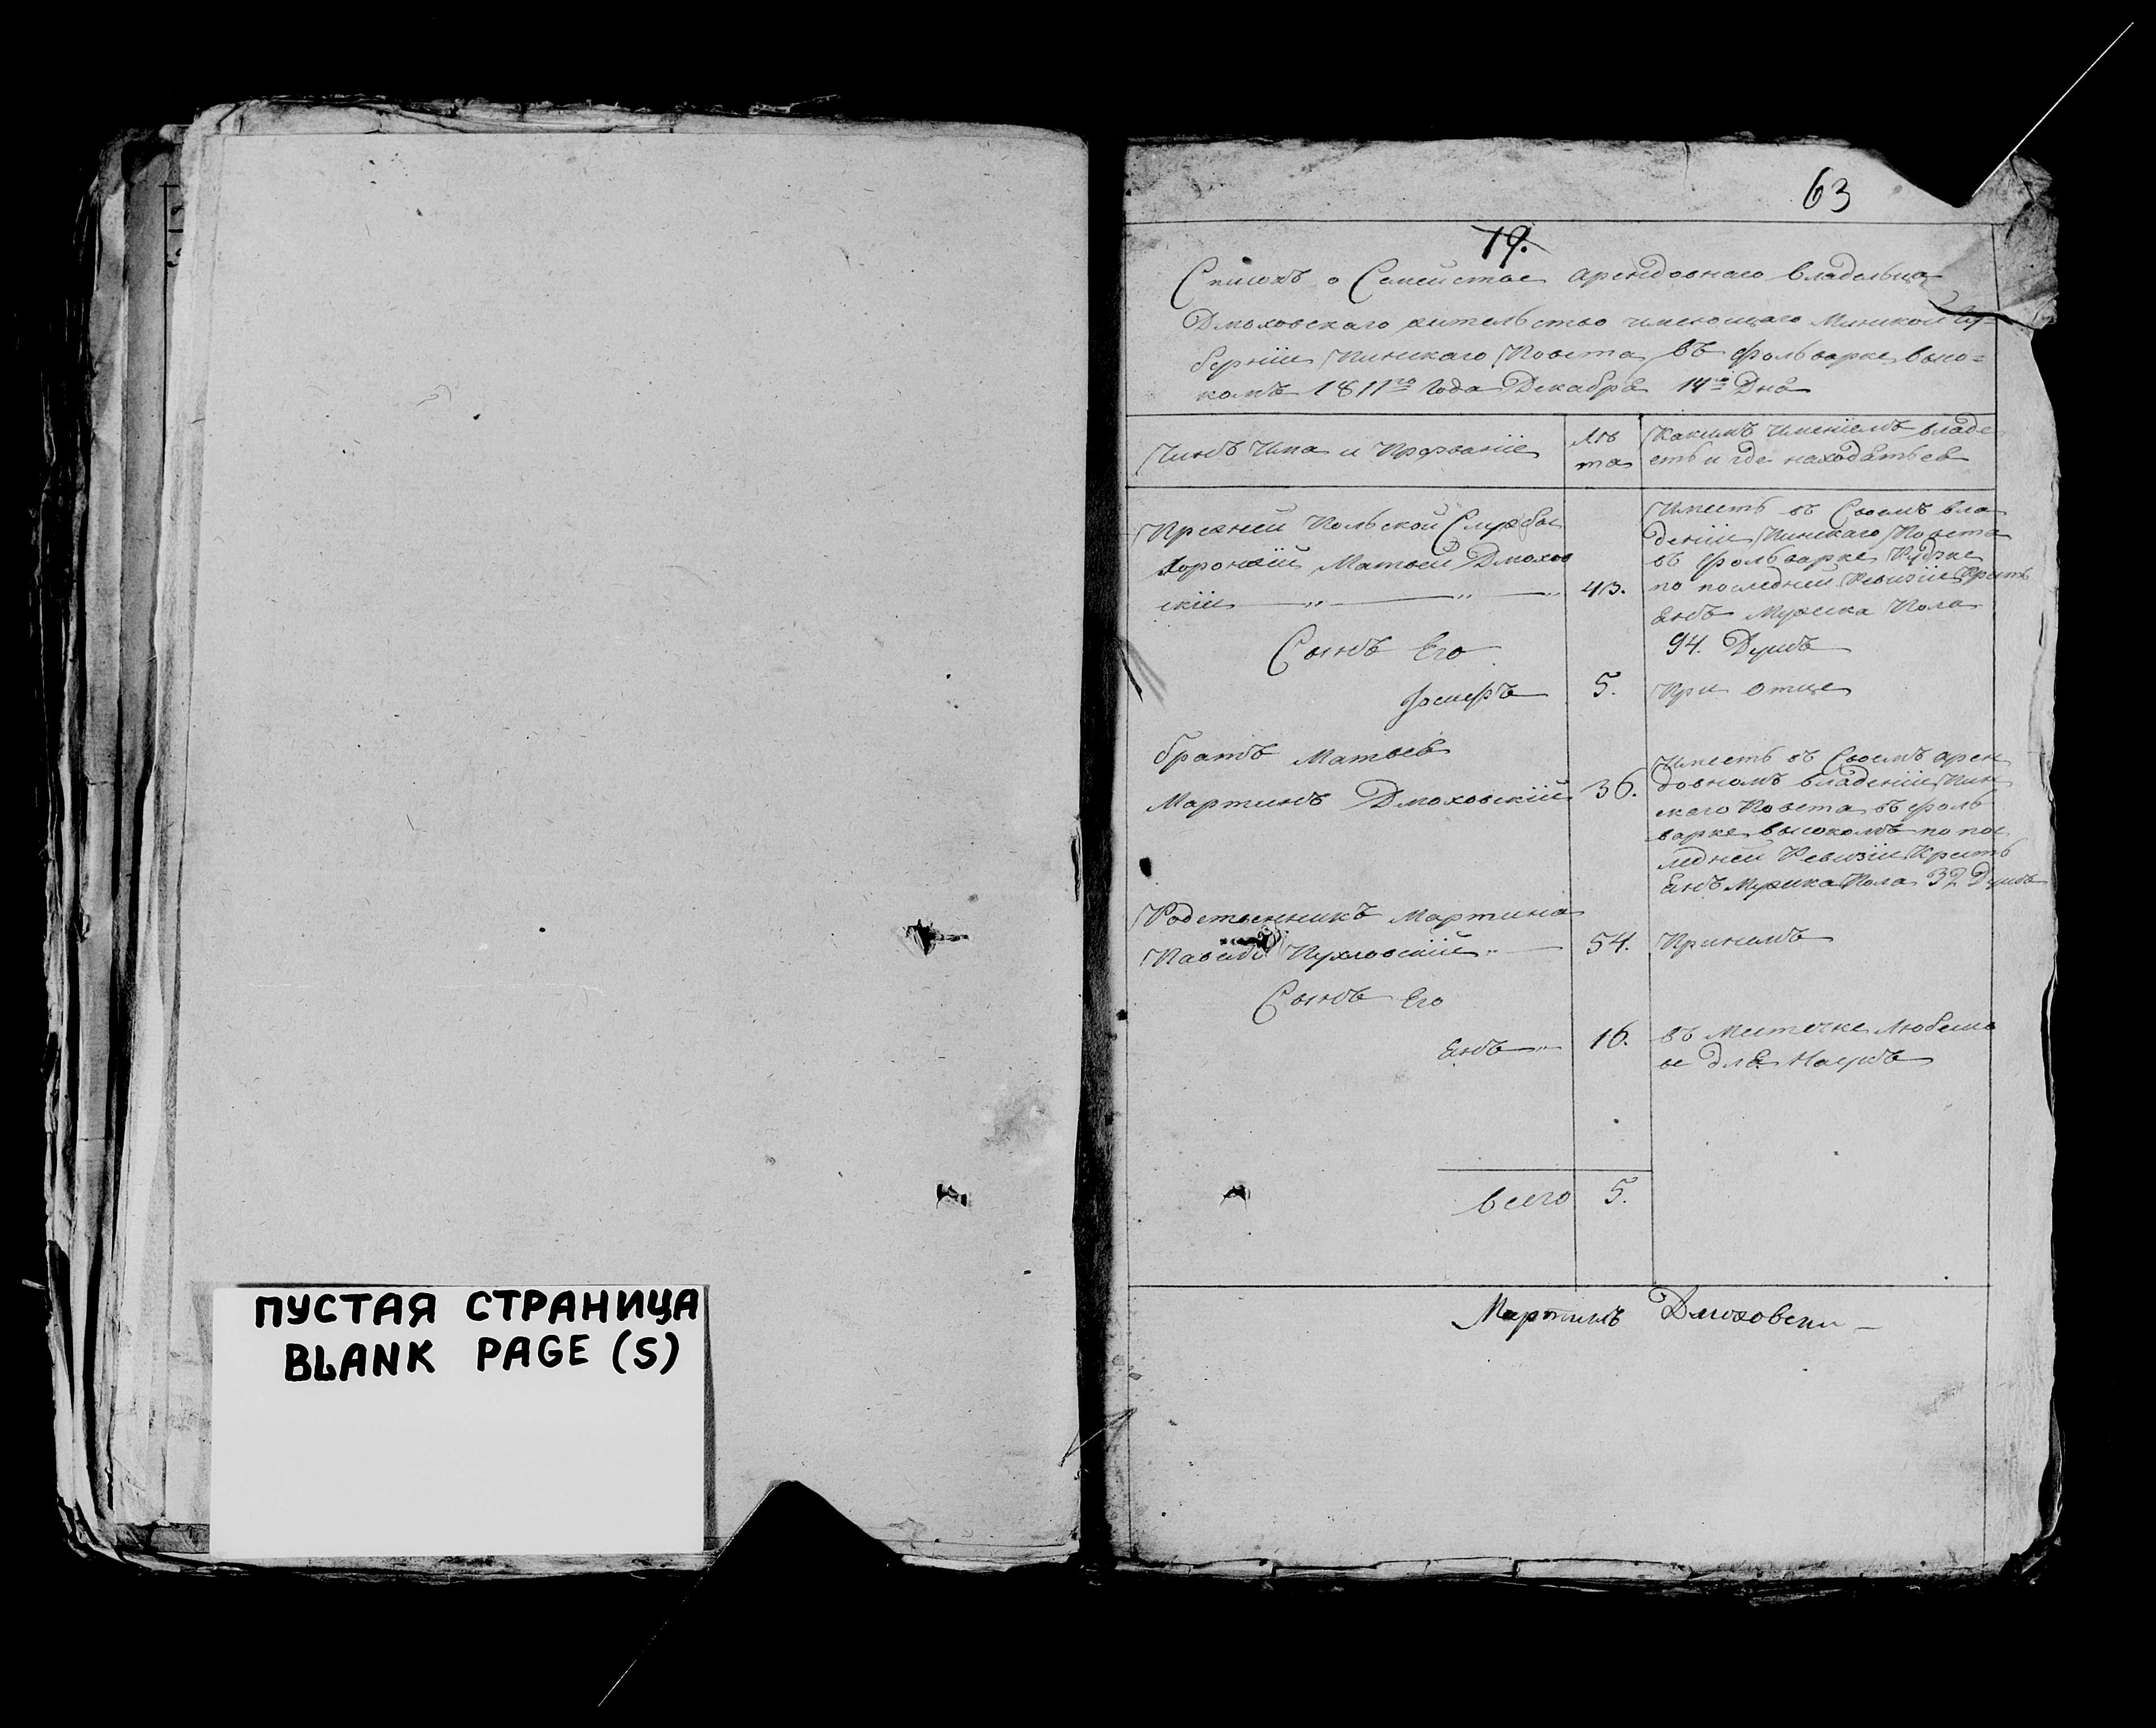 ПУСТАЯ СТРАНИЦА
BLANK PAGE (S)
63
19.
Списокъ о Семействе арендовнаго владельца
Дмоховскаго жительство имеющаго Минской Гу=
берніи Пинскаго Повета въ фольварке высо=
комъ 1811го Года Декабря 14го Дня
Чинъ Имя и Прозваніе
Ле
та
Какимъ Именіемъ владе
еть и где находятьсе
Прежней Польской Службы
Хоронжій Матвей Дмохов
скій
43.
Имееть въ Своемъ вла
деніи Пинскаго Повета
въ фольварке
по последней Ревизіи Крить
янъ Мужска Пола
94. Душъ
Сынъ Его
Іосифъ
5.
При отце
братъ Матвея
Мартинъ Дмоховскій
36.
Имееть въ Своемъ арен
довномъ владеніи Пин
скаго Повета въ фоль
варке высокомъ по пос
ледней Ревизіи Крить
янъ Мужска Пола 32 Душъ
Родственникъ Мартина
Павелъ
54.
При немъ
Сынъ Его
Янъ
16.
въ Местечке Любешо
ве для Наукъ
всего 5.
Мартинъ Дмоховски